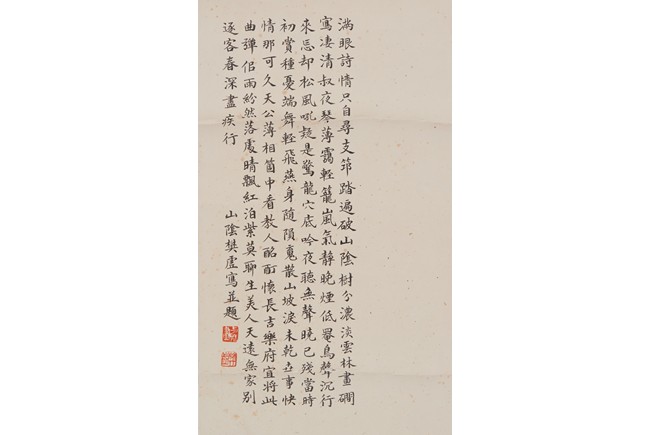 滿眼詩情只自尋支笻踏遍破山陰樹分濃淡雲林畫磵
寫凄清叔夜琴薄靄輕籠嵐氣靜晚煙低罨鳥聲沉行
來忘却松風吼疑是驚龍穴底吟夜聽無聲曉已殘當時
初賞種憂端舞輕飛燕身隨隕䰟散山坡淚未乾世事快
情那可久天公薄相箇中看教人酩酊懷長吉樂府宜將此
曲彈佀雨紛然落處晴飄紅泊紫莫聊生美人天遠無家別
逐客春深盡族行
山陰樊虛寫並題